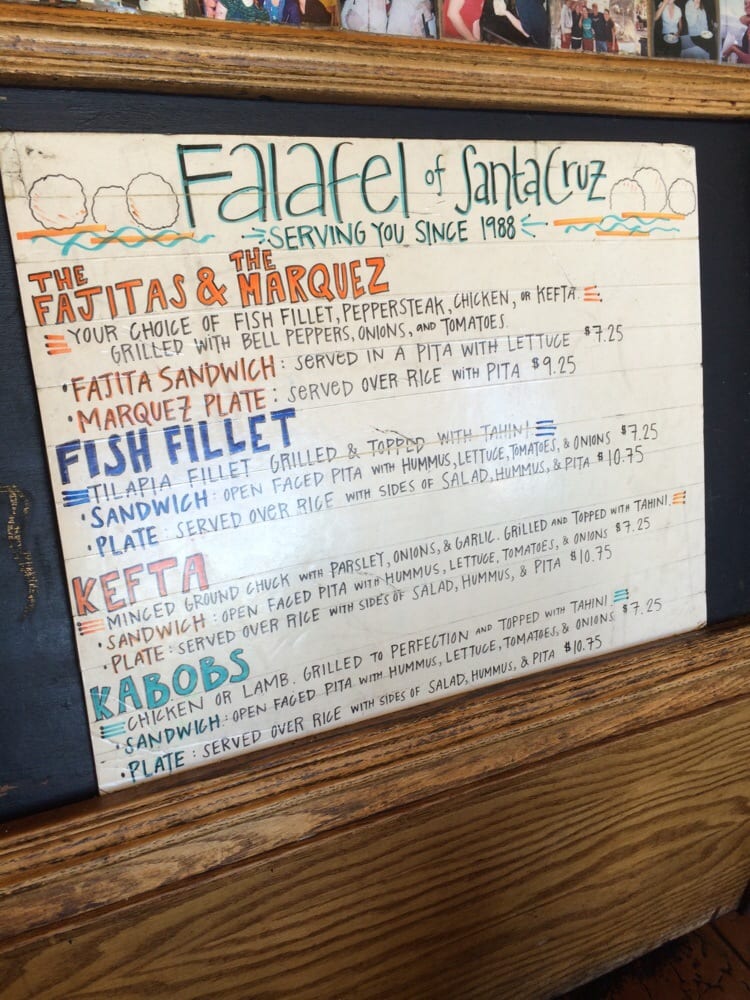 Falafel of Santa Cruz
SERVING YOU SINCE 1988
THE FAJITAS & THE MARQUEZ
YOUR CHOICE OF FISH FILLET, PEPPERSTEAK, CHICKEN, OR KEFTA
GRILLED WITH BELL PEPPERS, ONIONS, AND TOMATOES.
• FAJITA SANDWICH: SERVED IN A PITA WITH LETTUCE $7.25
• MARQUEZ PLATE: SERVED OVER RICE WITH PITA $9.25
FISH FILLET
TILAPIA FILLET GRILLED & TOPPED WITH TAHINI
• SANDWICH: OPEN FACED PITA WITH HUMMUS, LETTUCE, TOMATOES, & ONIONS $7.25
• PLATE: SERVED OVER RICE WITH SIDES OF SALAD, HUMMUS, & PITA $10.75
KEFTA
MINCED GROUND CHUCK WITH PARSLEY, ONIONS, & GARLIC. GRILLED AND TOPPED WITH TAHINI.
• SANDWICH: OPEN FACED PITA WITH HUMMUS, LETTUCE, TOMATOES, & ONIONS $7.25
• PLATE: SERVED OVER RICE WITH SIDES OF SALAD, HUMMUS, & PITA $10.75
KABOBS
CHICKEN OR LAMB. GRILLED TO PERFECTION AND TOPPED WITH TAHINI.
• SANDWICH: OPEN FACED PITA WITH HUMMUS, LETTUCE, TOMATOES, & ONIONS $7.25
• PLATE: SERVED OVER RICE WITH SIDES OF SALAD, HUMMUS, & PITA $10.75